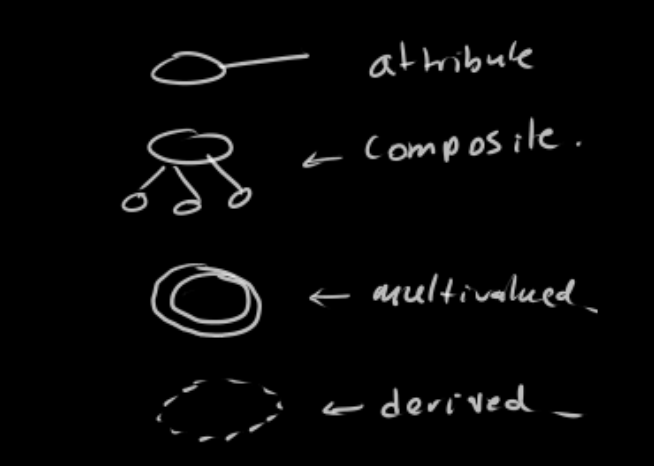 attribute
← composite.
← multivalued
← derived